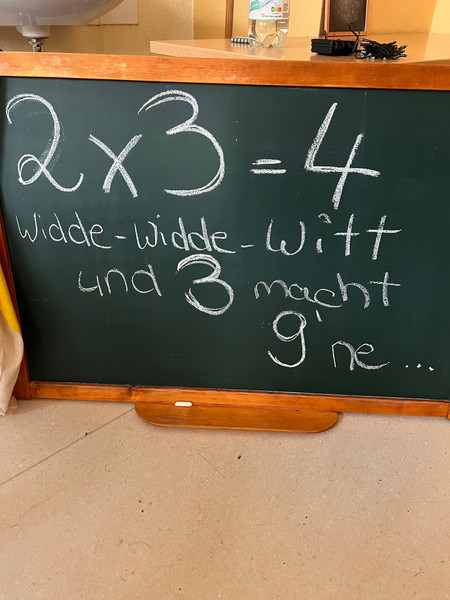 2 x 3 = 4
Widde-widde-witt
und 3 macht
9'ne...